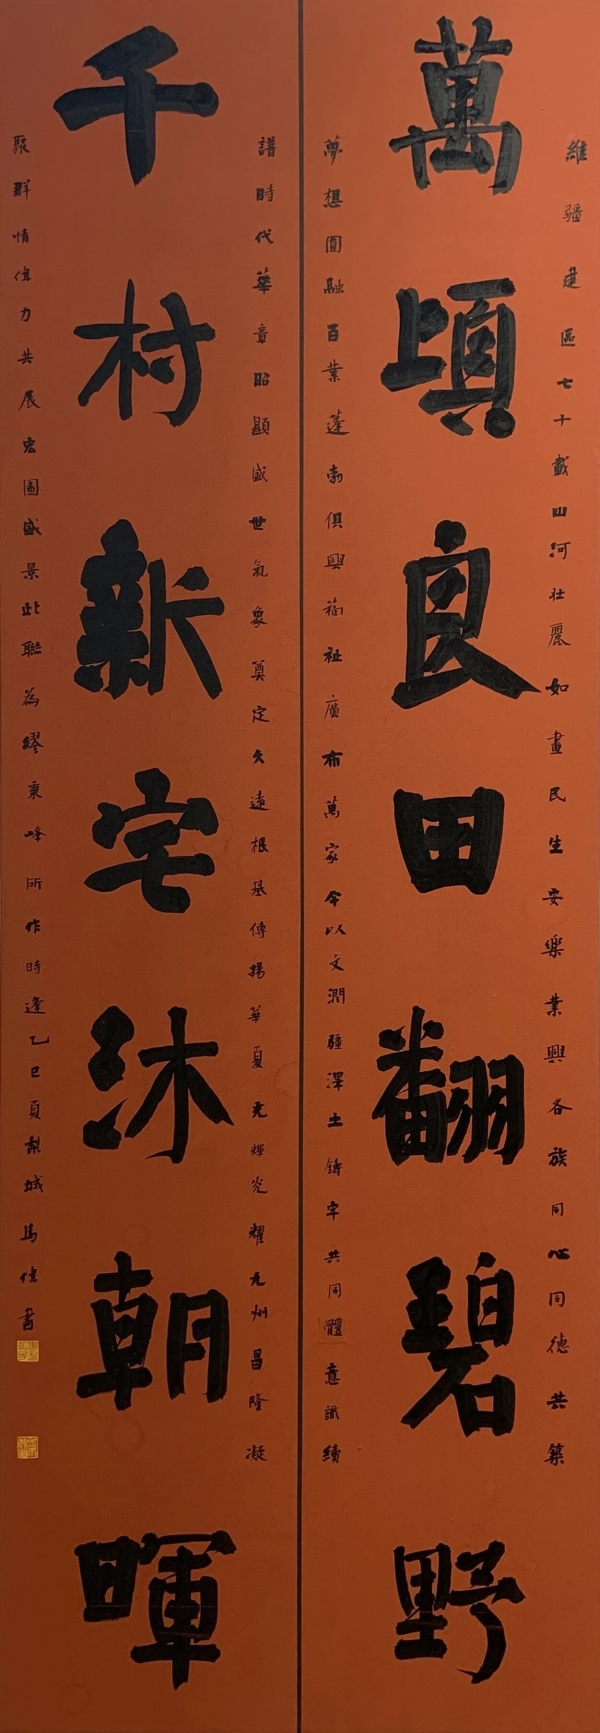 萬頃良田翻碧野
維疆建區七十載山河壯麗如畫民生安樂業興各族同心同德共築
夢想圓融百業蓬勃俱興福祉廣布萬家今以文潤疆澤土鑄牢共同體意識續
千村新宅沐朝暉
譜時代華章昭顯盛世氣象奠定久遠根基傳揚華夏光輝光耀九州昌隆凝
聚群情偉力共展宏圖盛景此聯為繆秉峰所作時逢乙巳夏梨城馬偉書